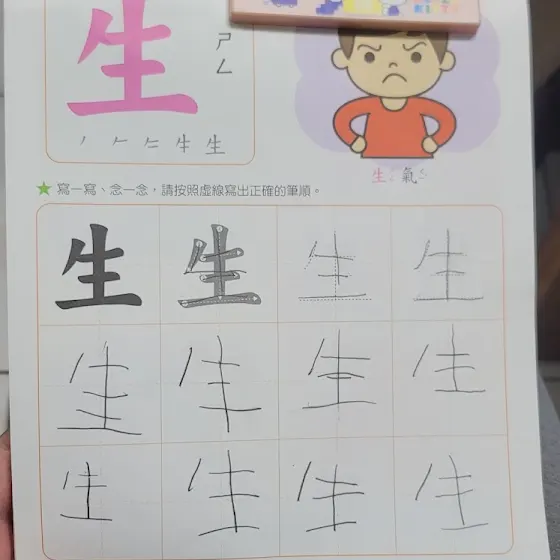 生
ㄕ
ㄥ
生
生氣
★ 寫一寫、念一念，請按照虛線寫出正確的筆順。
生 生 生 生
生 生 生 生
生 生 生 生